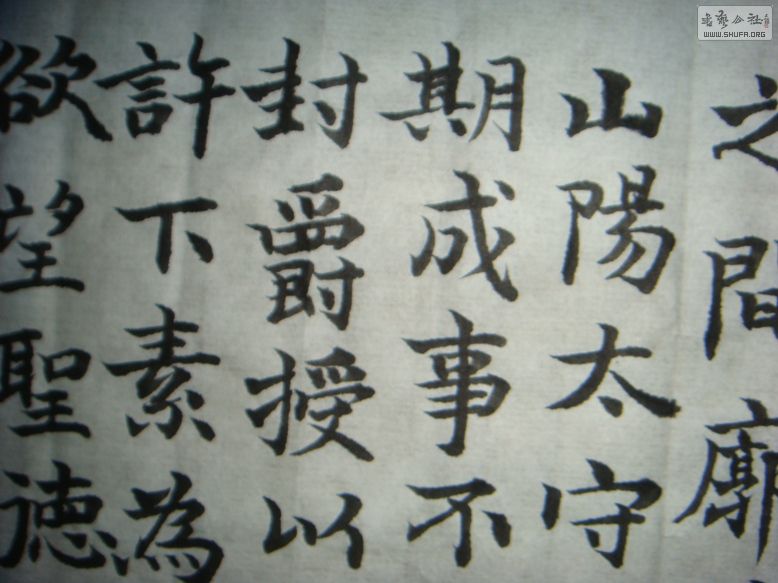 之間廓
山陽太守
期成事不
封爵授以
許下素為
欲望聖德
书艺公社
WWW.SHUFA.ORG